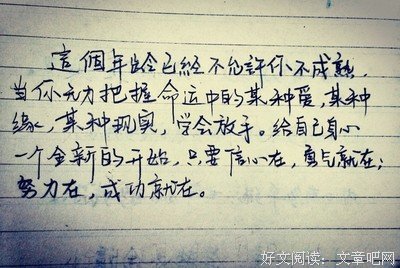 這個年齡已經不允許你不成熟,
当你无力把握命运中的某种爱,某种
缘,某种现实,学会放手。给自己
一个全新的开始,只要信心在,勇气就在;
努力在,成功就在。
好文阅读:文章吧网